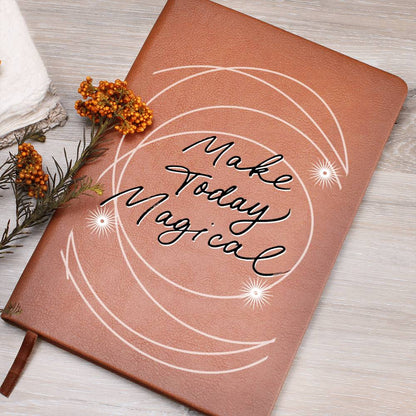 Make
Today
Magical